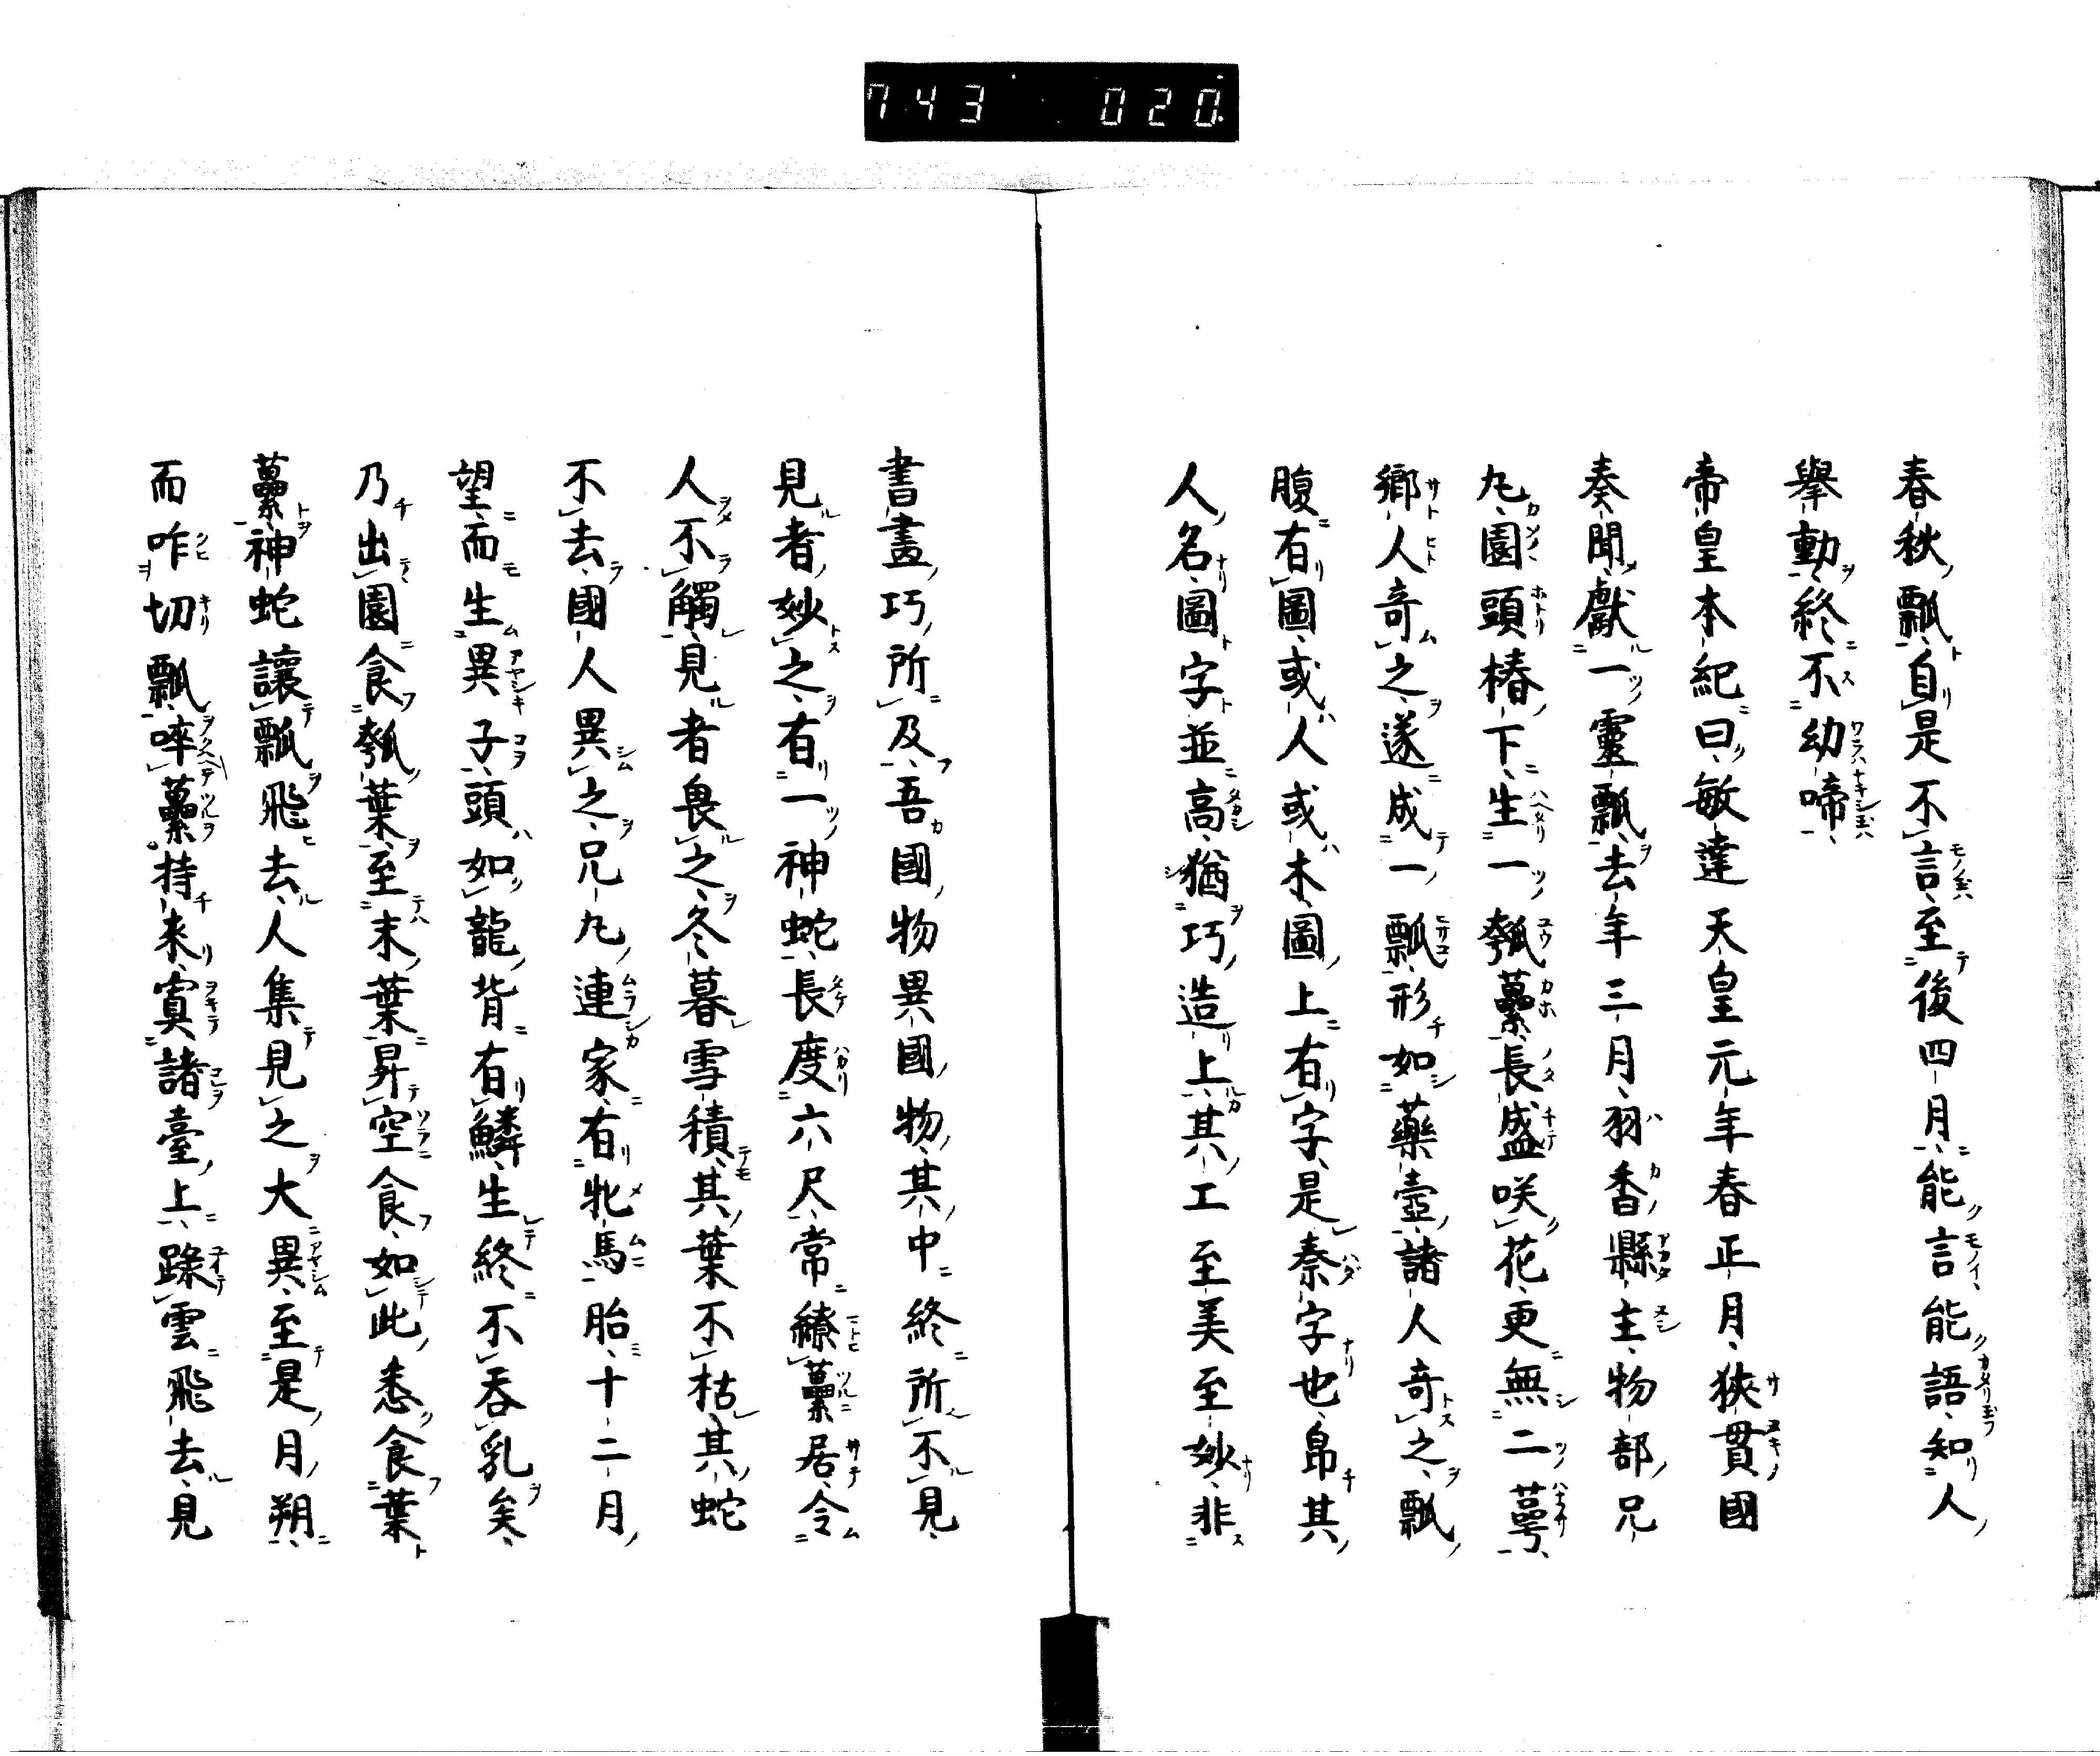 743 020
春秋瓢自是不言至後四月能言能語知人
擧動終不幼啼
帝皇本紀曰敏達天皇元年春正月狹貫國
奏聞獻一靈瓢去年三月羽香縣主物部兄
丸園頭椿下生一瓠蔓長盛咲花更無二萼
鄉人奇之遂成一瓢形如藥壺諸人奇之瓢
腹有圖或人或木圖上有字是秦字也帛其
人名圖字並高猶巧造上其工至美至妙非
書畫巧所及吾國物異國物其中終所不見
見者妙之有一神蛇長度六尺常繚藁居令
人不觸見者畏之冬暮雪積其葉不枯其蛇
不去國人異之兄丸連家有牝馬胎十二月
望而生異子頭如龍背有鱗生終不吞乳矣
乃出園食瓠葉至末葉昇空食如此悉食葉
藁神蛇讓瓢飛去人集見之大異至是月朔
而咋切瓢啐藁持来寘諸臺上蹂雲飛去見